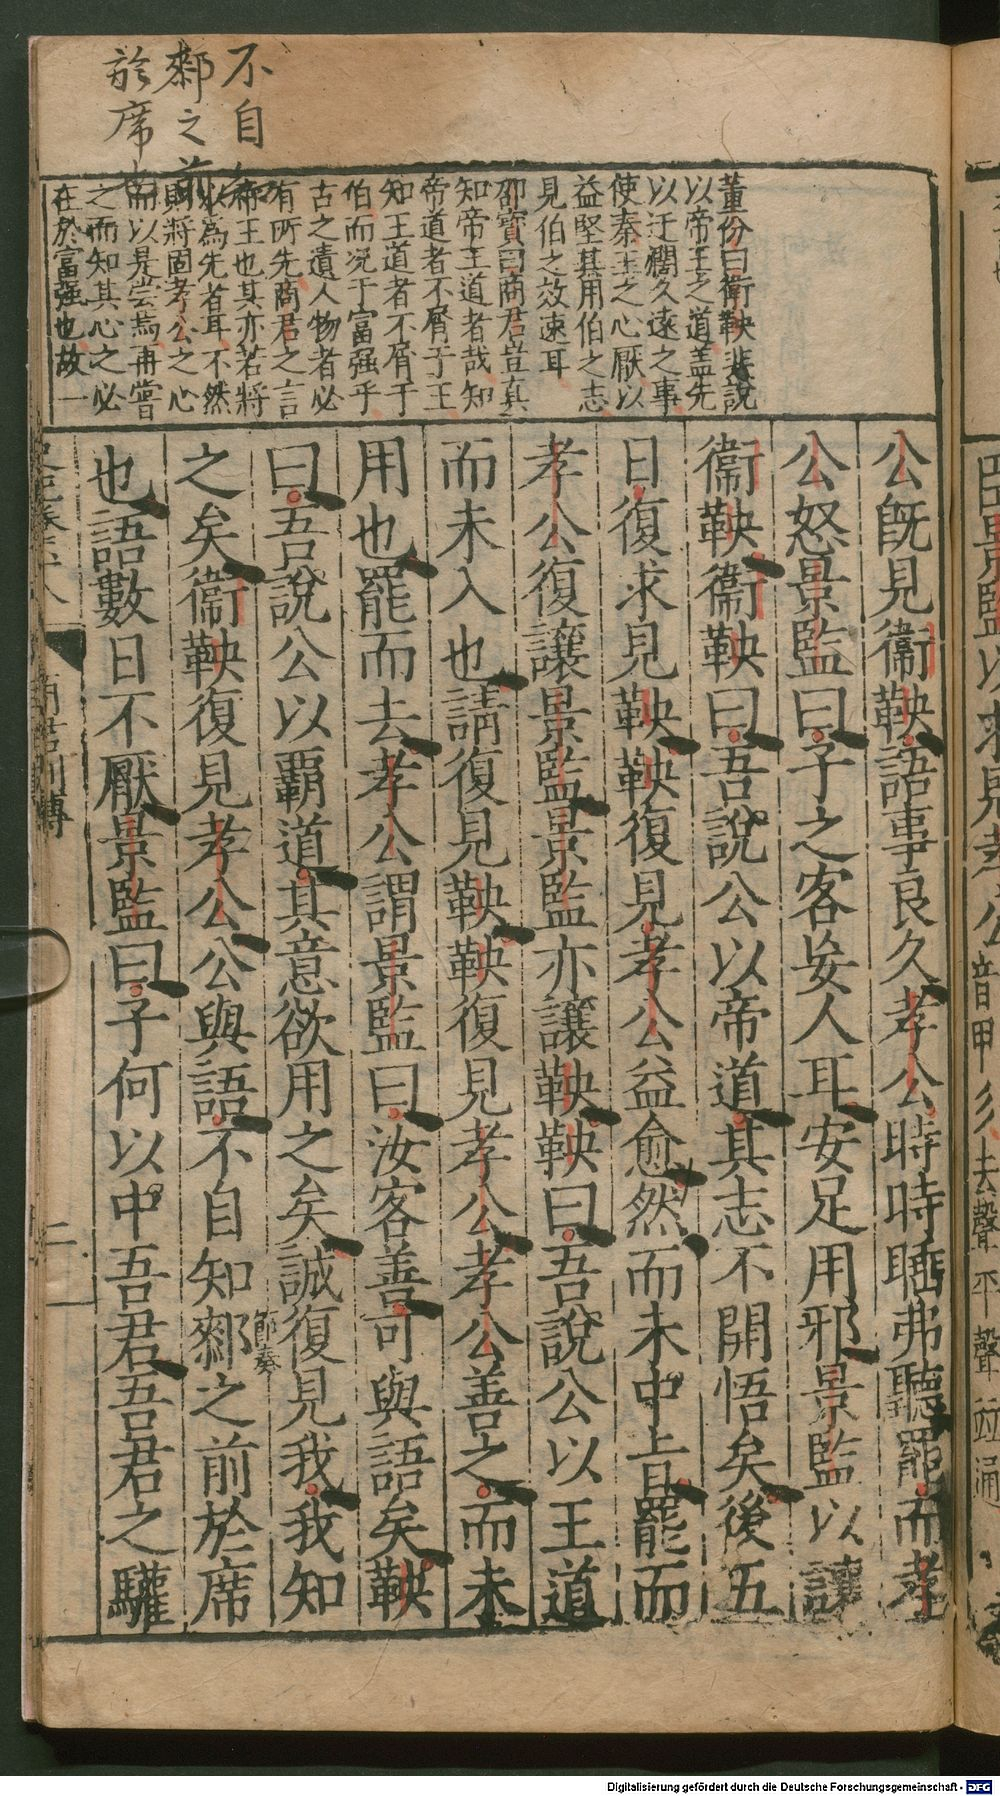 不自知
鄰之前
於席也
董份曰衛鞅進說
以帝王之道盖先
以迂濶久遠之事
使秦王之心厭以
益堅其用伯之志
見伯之效速耳
邵寶曰商君豈真
知帝王道者哉知
帝道者不屑于王
知王道者不屑于
伯而况于富强乎
古之遺人物者必
有所先商君之言
帝王也其亦若將
以為先者耳不然
則將固孝公之心
而以是尝焉再嘗
之而知其心之必
在於富强也故一
公既見衞鞅語事良久孝公時時睡弗聽罷而孝
公怒景監曰子之客妄人耳安足用邪景監以讓
衞鞅衞鞅曰吾說公以帝道其志不開悟矣後五
日復求見鞅鞅復見孝公益愈然而未中旨罷而
孝公復讓景監景監亦讓鞅鞅曰吾說公以王道
而未入也請復見鞅鞅復見孝公孝公善之而未
用也罷而去孝公謂景監曰汝客善可與語矣鞅
曰吾說公以覇道其意欲用之矣誠復見我我知
之矣衞鞅復見孝公公與語不自知厀之前於席
節奏
也語數日不厭景監曰子何以中吾君吾君之驩
商君列傳
二
田景監以求見孝公音甲彡去聲平聲並通
Digitalisierung gefördert durch die Deutsche Forschungsgemeinschaft - DFG